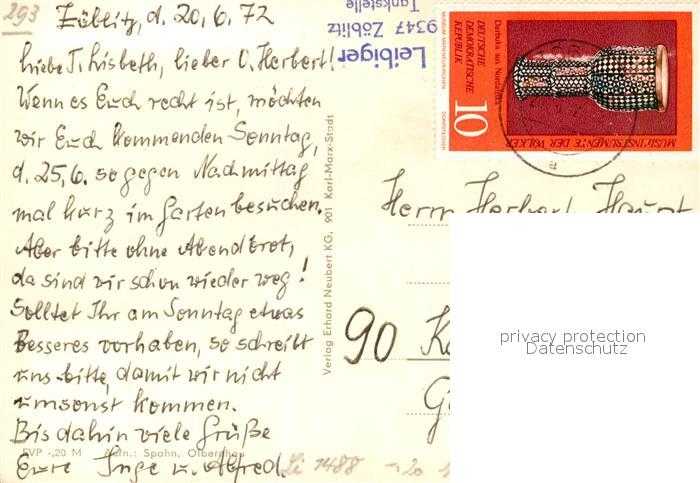 293
Zöblitz, d. 20.6.72
Liebe T. Lisbeth, lieber O. Herbert!
Wenn es Euch recht ist, möchten
wir Euch kommenden Sonntag,
d. 25.6. so gegen Nachmittag
mal kurz im Garten besuchen.
Aber bitte ohne Abendbrot,
da sind wir schon wieder weg!
Solltet Ihr am Sonntag etwas
Besseres vorhaben, so schreibt
uns bitte, damit wir nicht
umsonst kommen.
Bis dahin viele Grüße
EVP -,20 M Aufn.: Spohn, Olbernhau
Eure Inge u. Alfred.
Li 1488 -20
Verlag Erhard Neubert KG, 901 Karl-Marx-Stadt
Leibiger
9347 Zöblitz
Tankstelle
MUSEUM MARKNEUKIRCHEN
DORFSTECHER
DEUTSCHE
DEMOKRATISCHE
REPUBLIK
Darbuka aus Nordafrika
10
MUSIKINSTRUMENTE DER VÖLKER
Herrn Herbert
90
privacy protection
Datenschutz